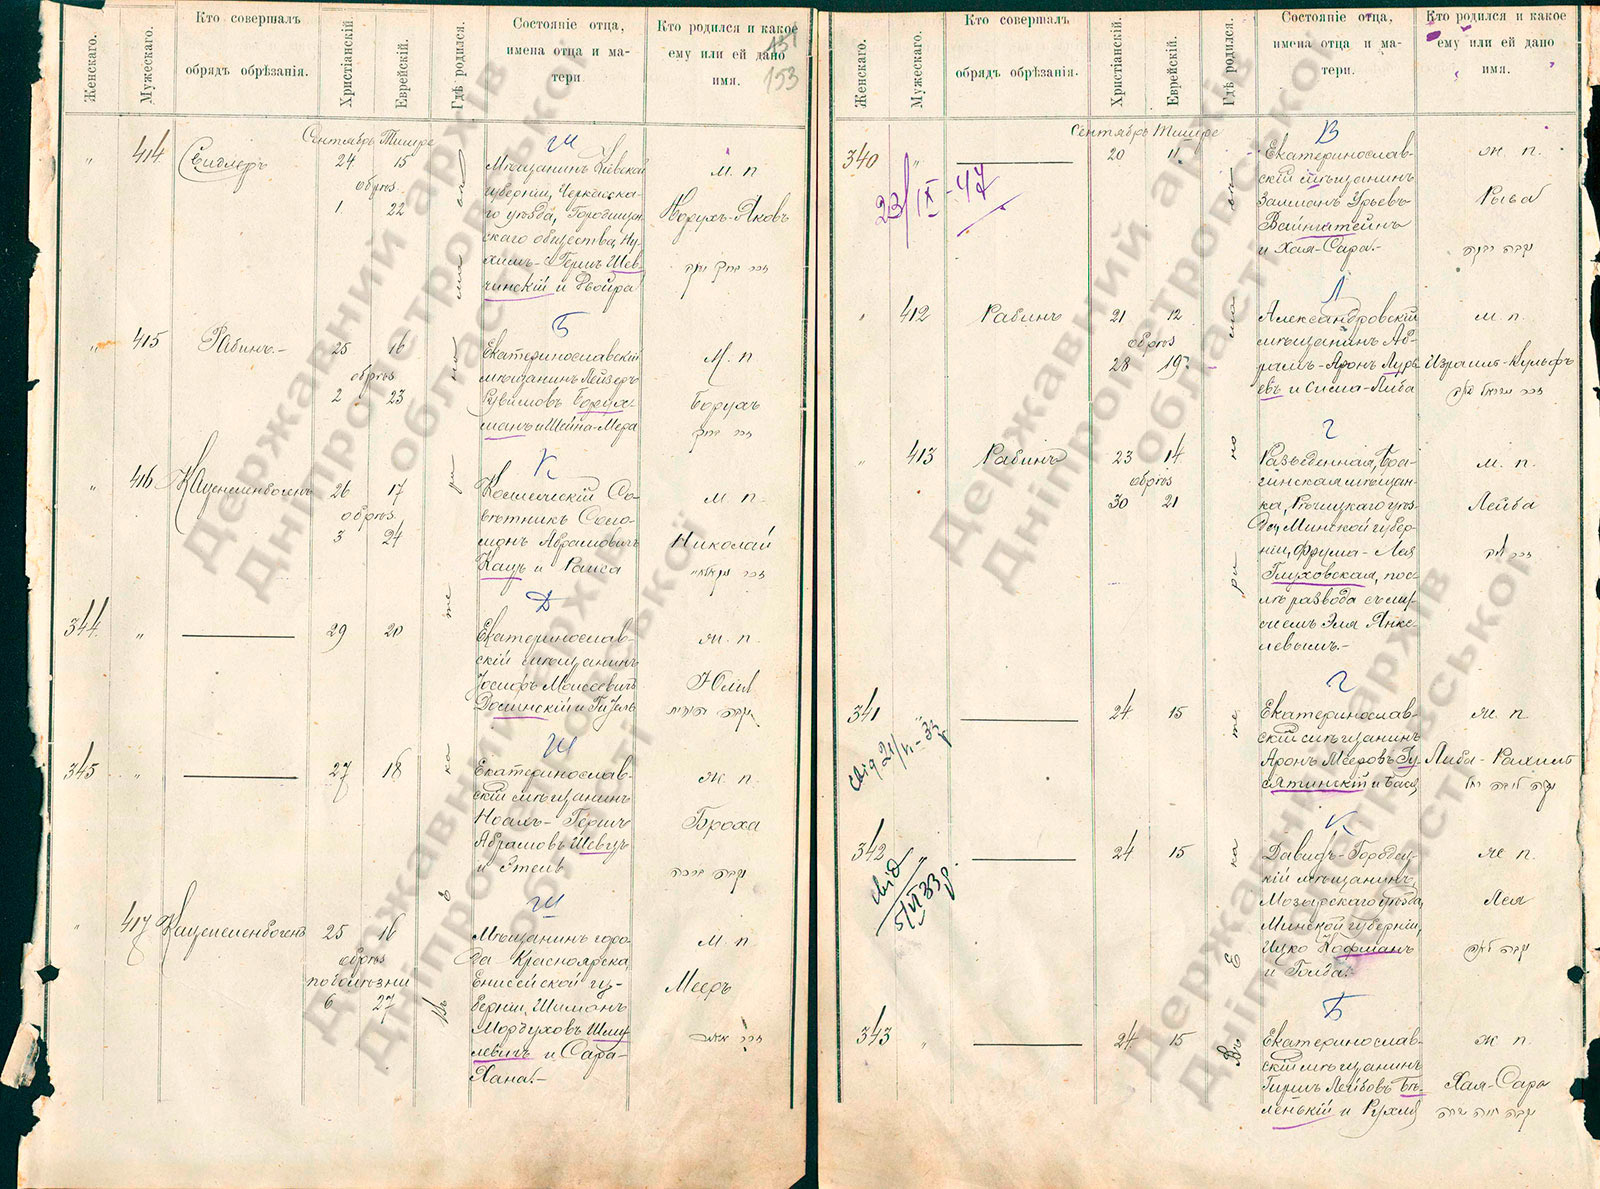 Женскаго.
Мужескаго.
Кто совершалъ
обрядъ обрѣзанія.
Христіанскій
Еврейскій.
Гдѣ родился.
Состояніе отца,
имена отца и ма-
тери.
Кто родился и какое
ему или ей дано
имя.
151
153
Сентябрь Тишре
"
414
24 15
обрѣз.
1. 22
Ш
Мѣщанинъ Кіевской
губерніи, Черкасска-
го уѣзда, Городищен-
скаго общества, Ну-
химъ-Гершъ Шев-
чинскій и Двойра
м. п
זכר ברוך יעקב
"
415
Рабинъ.-
25 16
обрѣз
2 23
Б
Екатеринославскій
мѣщанинъ Лейзеръ
Борух-
манъ и Шейна-Мера
м. п
Борухъ
זכר ברוך
"
416
Каценеленбогенъ
26 17
обрѣз.
3 24
К
Коллежскій Со-
вѣтникъ Соло-
монъ Абрамовичъ
Кацъ и Раиса
м. п.
Николай
344.
"
29 20
Д
Екатеринослав-
скій мѣщанинъ
Іосифъ Моисеевичъ
Долинскій и Гизель
ж. п.
Юлія
345
"
27 18
Ш
Екатеринослав-
скій мѣщанинъ
Ноахъ-Гершъ
Абрамовъ Шевцъ
и Этель
ж. п
Броха
נקבה ברכה
"
417
Каценеленбогенъ
25 16
обрѣз
по болѣзни
6 27
Ш
Мѣщанинъ горо-
да Красноярска,
Енисейской гу-
берніи, Шимонъ
Мордуховъ Шму-
левичъ и Сара-
Хана.-
м. п
Мееръ
זכר מאיר
Въ Екатеринославѣ
Женскаго.
Мужескаго.
Кто совершалъ
обрядъ обрѣзанія.
Христіанскій
Еврейскій.
Гдѣ родился.
Состояніе отца,
имена отца и ма-
тери.
Кто родился и какое
ему или ей дано
имя.
Сентябрь Тишре
340
"
20 11
23/IX-47
В
Екатеринослав-
скій мѣщанинъ
Залманъ Урьевъ
Вайнгатейнъ
и Хая-Сара.-
ж. п.
Рыва
"
412
Рабинъ
21 12
обрѣз
28 19
Л
Александровскій
мѣщанинъ Аб-
рамъ-Аронъ Лурь-
евъ и Сима-Либа
м. п.
Израиль-Вульфъ
"
413
Рабинъ
23 14
обрѣз
30 21
Г
Разведенная, Бра-
гинская мѣщан-
ка, Рѣчицкаго уѣз-
да, Минской губер-
ніи, Фрума-Лая
Глуховская, пос-
лѣ развода съ му-
жемъ Эля Янке-
левымъ.-
м. п.
Лейба
זכר ליב
341
24 15
Г
Екатеринослав-
скій мѣщанинъ
Аронъ Мееровъ Гу-
сятинскій и Бася
ж. п.
Либа-Рахиль
נקבה ליבה רחל
342
24 15
К
Давидъ-Городец-
кій мѣщанинъ,
Мозырскаго уѣзда,
Минской губерніи,
Ицко Кофманъ
и Голда.
ж п.
Лея
נקבה לאה
343
"
24 15
Б
Екатеринослав-
скій мѣщанинъ
Гиршъ Лейбовъ Бѣ-
ленькій и Рухля
ж п.
Хая-Сара
נקבה חיה שרה
Въ Екатеринославѣ
Державний архів
Дніпропетровської
області